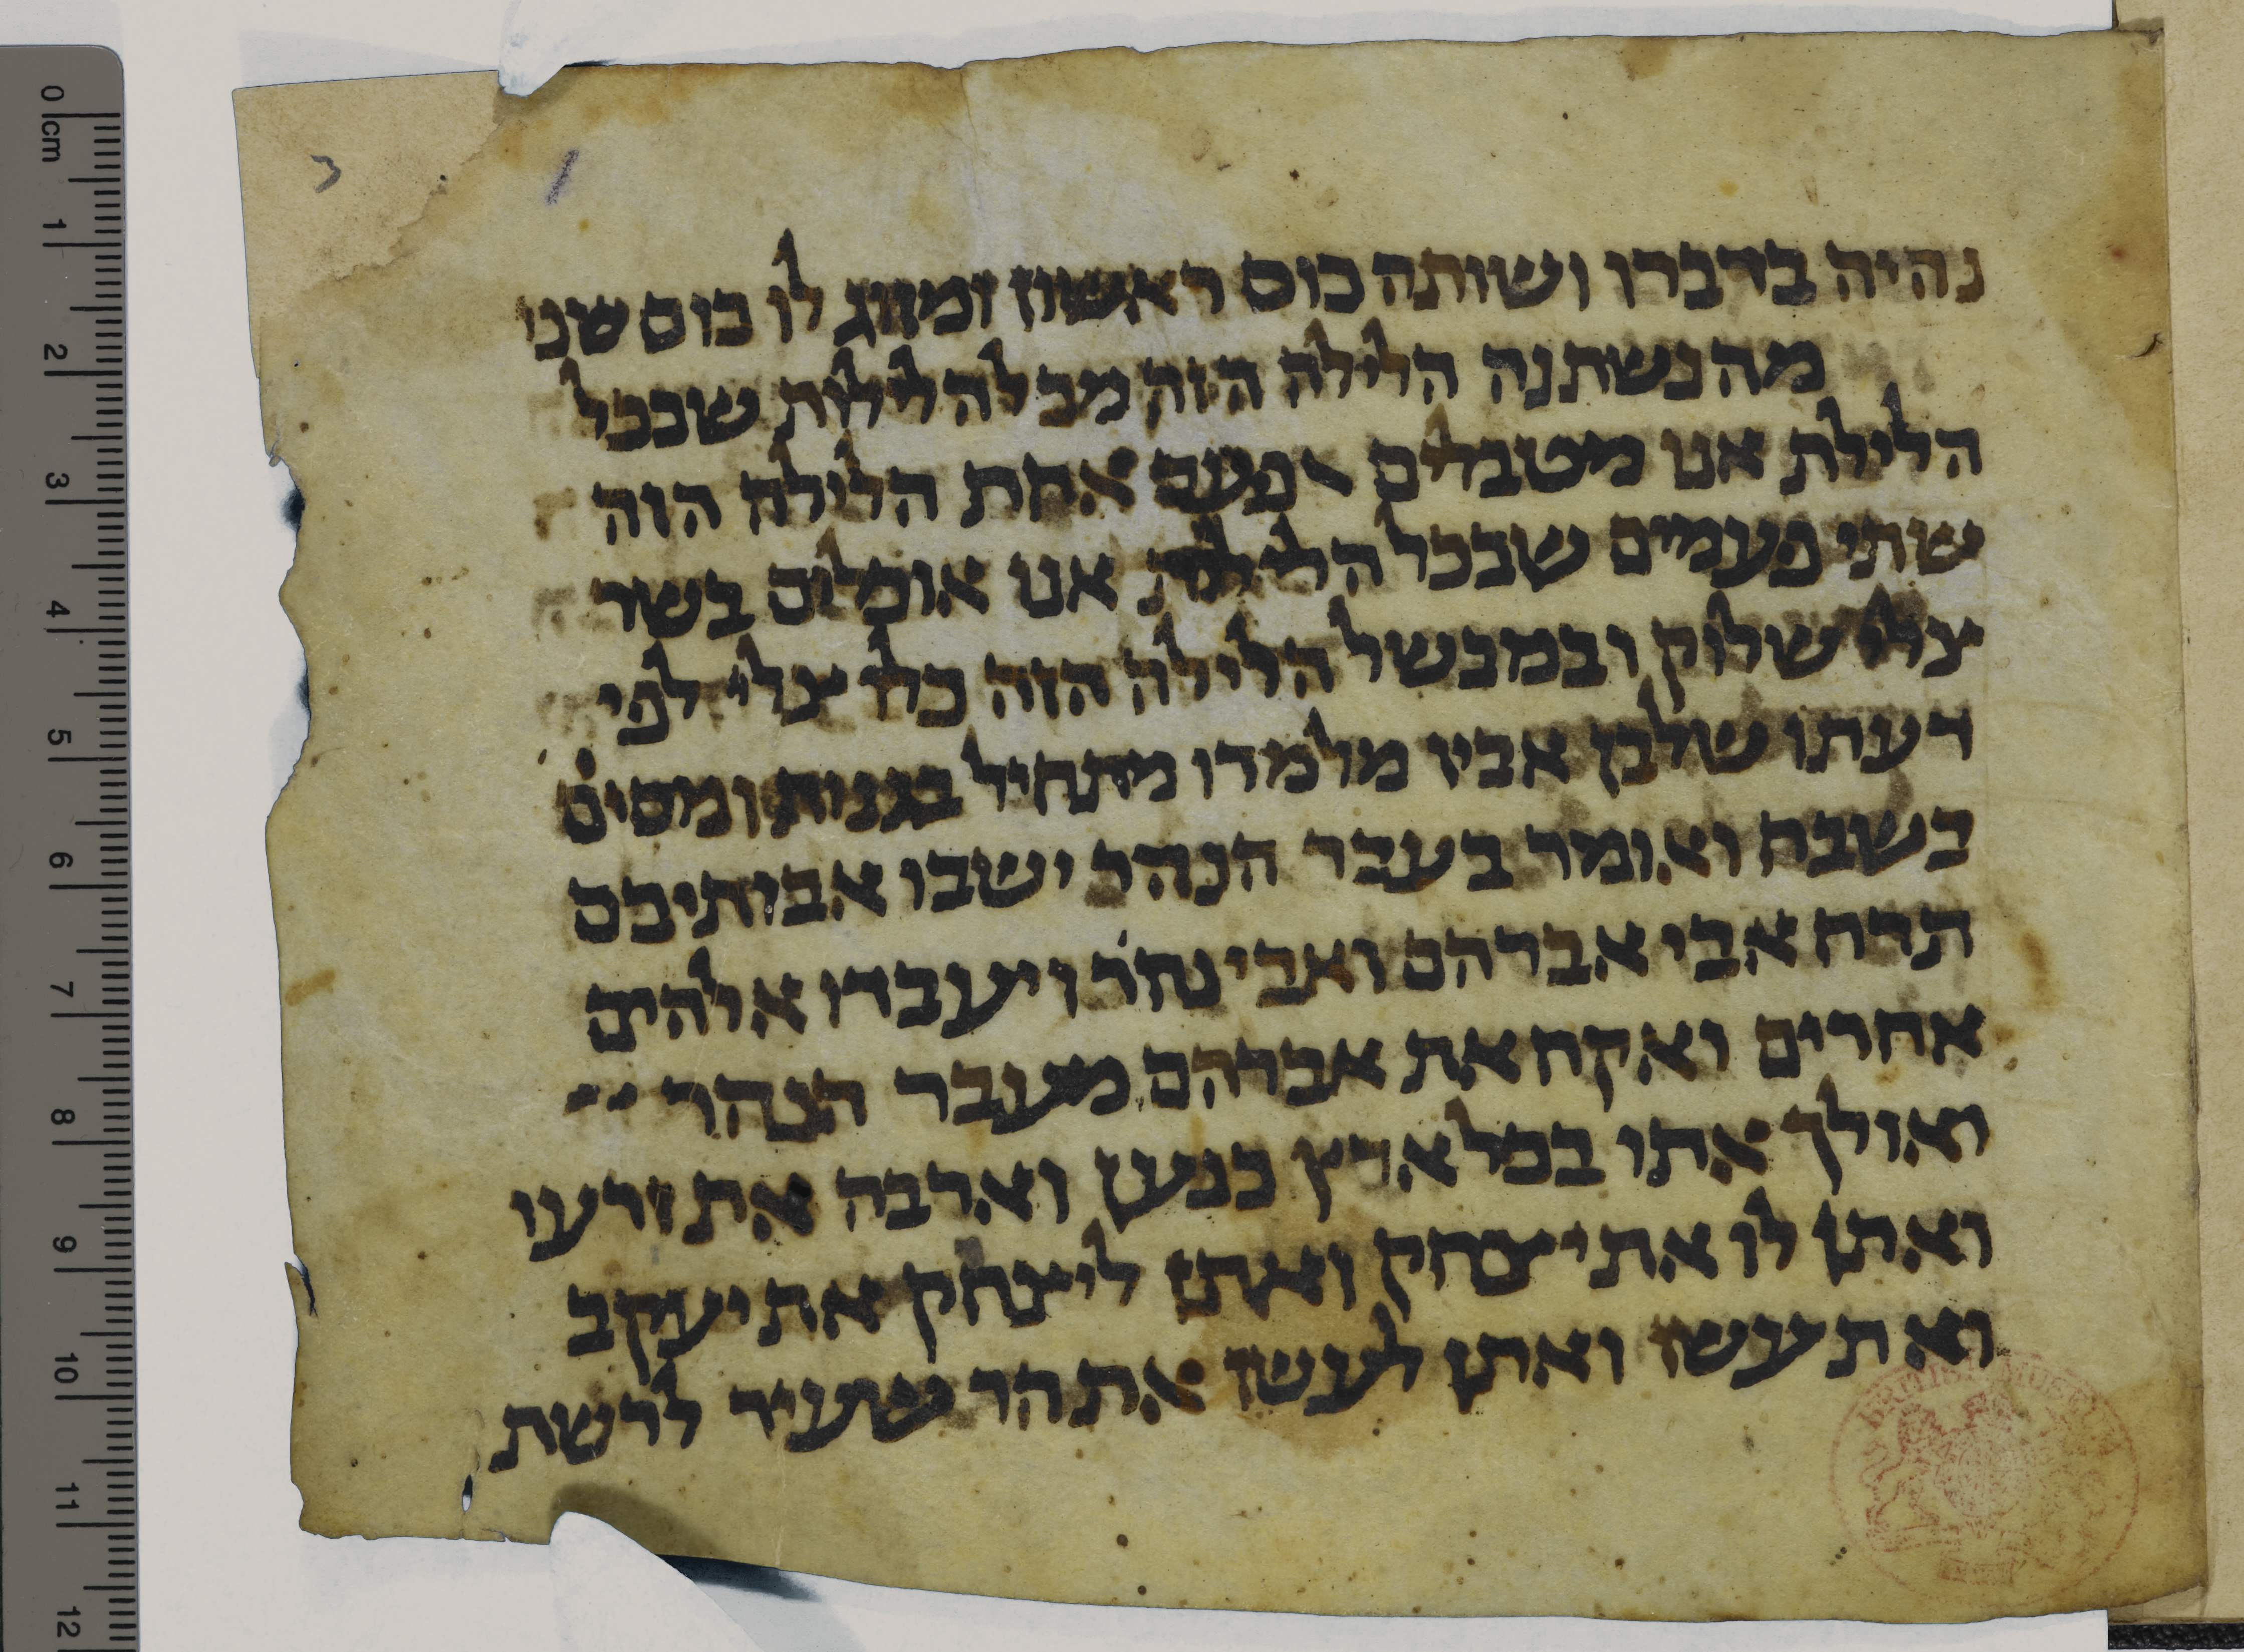 נהיה בדברו ושותה כוס ראשון ומוזג לו כוס שני
מה נשתנה הלילה הזה מכל הלילות שבכל
הלילת אנו מטבלים פעם אחת הלילה הזה
שתי פעמים שבכל הלילות אנו אוכלים בשר
צלי שלוק ובמבשל הלילה הזה כלו צלי לפי
דעתו שלבן אביו מלמדו מתחיל בגנות ומסים
בשבח ואומר בעבר הנהר ישבו אבותיכם
תרח אבי אברהם ואבי נחר ויעבדו אלהים
אחרים ואקח את אברהם מעבר הנהר
ואולך אתו בכל ארץ כנען וארבה את זרעו
ואתן לו את יצחק ואתן ליצחק את יעקב
ואת עשו ואתן לעשו את הר שעיר לרשת
BRITISH MUSEUM
0 cm 1 2 3 4 5 6 7 8 9 10 11 12